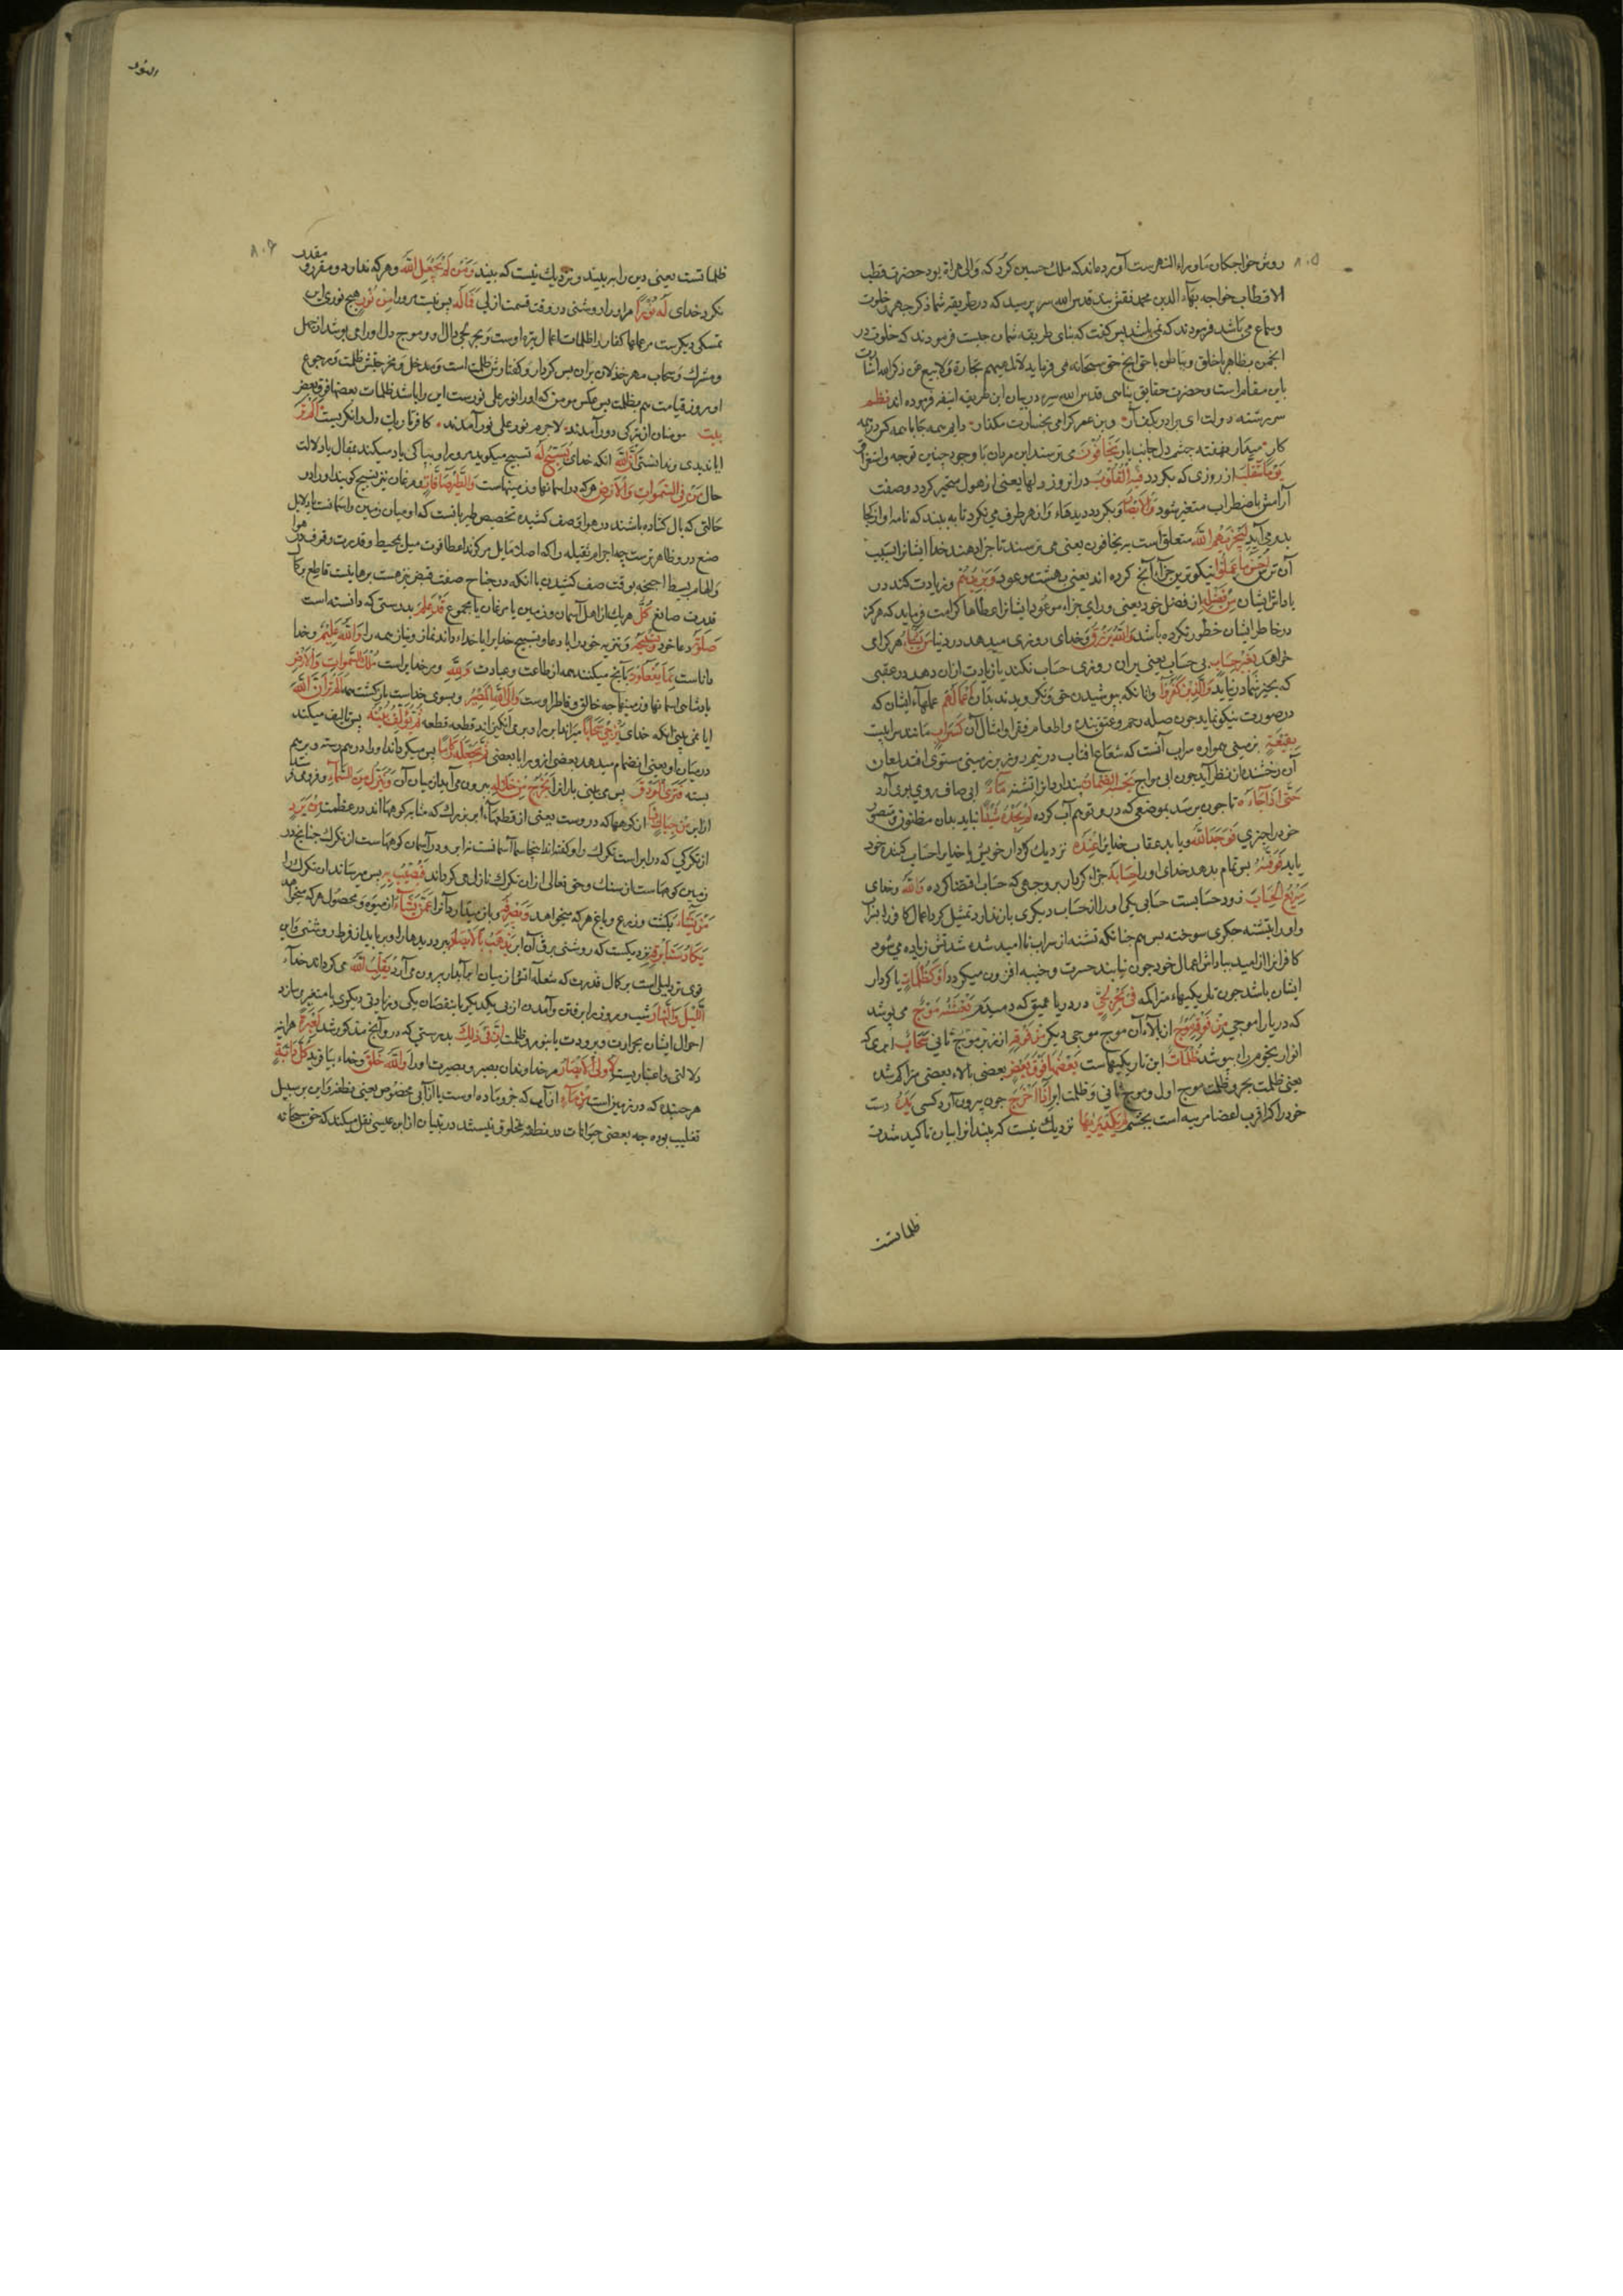 ۸۰۵
روش خواجکان ماوراء النهرست آورده‌اند که ملک حسین کرد که والی هراة بود حضرت قطب
الاقطاب خواجه بهاء الدین محمد نقش بند قدس الله سره پرسید که در طریقه شما ذکر جهر و خلوت
و سماع می باشد فرمودند که نمی باشد پس کفت که بنای طریقه شما بر چیست فرمودند که خلوت در
انجمن بظاهر با خلق و بباطن با حق آنچ حق سبحانه می فرماید لا تلهیهم تجارة ولا بیع عن ذکر الله اشارت
باین مقام است و حضرت حقایق پناهی قدس الله سره در بیان این طریقه اینفر فرموده اند نظم
سر رشته دولت ای برادر بکف آر وین عمر کرامی بخسارت مکذار دایم همه جا با همه کس در همه
کار میدار نهفته چشم دل جانب یار یَخَافُونَ می ترسند این مردمان با وجود چنین توجه و استغراق
یَوْمًا تَتَقَلَّبُ از روزی که بکردد فِیهِ الْقُلُوبُ در آنروز دلها یعنی از هول متحیر کردد و صفت
آرامش باضطراب متغیر شود وَالْأَبْصَارُ و بکردد دیدهاء و از هر طرف می نکرد تا به بیند که نامه او از کجا
بدو می آید لِیَجْزِیَهُمُ اللَّهُ متعلق است به یخافون یعنی می ترسند تا جزا دهند خدا ایشانرا بسبب
آن ترس أَحْسَنَ مَا عَمِلُوا نیکوترین جزاء آنچ کرده اند یعنی بهشت موعود وَیَزِیدَهُمْ و زیادت کند در
پاداش ایشان مِنْ فَضْلِهِ از فضل خود یعنی ورای جزاء موعود ایشانرا عطاها کرامت فرماید که هرکز
در خاطر ایشان خطور نکرده باشد وَاللَّهُ یَرْزُقُ و خدای روزی میدهد در دنیا مَنْ یَشَاءُ هرکرا
خواهد بِغَیْرِ حِسَابٍ بی حساب یعنی بران روزی حساب نکند یا زیادت ازان دهد در عقبی
که بحیز شمار در نیاید وَالَّذِینَ کَفَرُوا و آنانکه بپوشیدن حق ونکرویدند بدان أَعْمَالُهُمْ عملهاء ایشان که
در صورت نیکو نماید چون صله رحم و عتق بنده و اطعام فقرا و امثال آن کَسَرَابٍ مانند سرابیست
بِقِیعَةٍ بزمینی هموار و سراب آنست که شعاع افتاب در نیم روز بر زمینی مستوی افتد لمعان
آن رخشنده از نظر آید چون آبی مواج یَحْسَبُهُ الظَّمْآنُ پندارد آنرا تشنه مَاءً آبی صاف روی برو آرد
حَتَّى إِذَا جَاءَهُ تا چون برسد بموضعی که درو توهم آب کرده لَمْ یَجِدْهُ شَیْئًا نیابد بدان مظنون و متصور
خود را چیزی وَوَجَدَ اللَّهَ و یابد عقاب خدایرا عِنْدَهُ نزدیک کردار خویش یا خدایرا حساب کننده خود
یابد فَوَفَّاهُ پس تمام بدهد خدای او را حِسَابَهُ جزاء کردار بر وجهی که حساب اقتضا کرده وَاللَّهُ و خدای
سَرِیعُ الْحِسَابِ زود حسابست حسابی یکی او را از حساب دیکری باز ندارد تمثیل کرد اعمال کافر را بسراب
و او را بتشنه جکری سوخته پس همچنانکه تشنه از سراب نا امید شده شدتش زیاده می شود
کافرانرا از امید پاداش اعمال خود چون نیابند حسرت و خیبه افزون میکردد أَوْ کَظُلُمَاتٍ یا کردار
ایشان باشد چون تاریکیهاء متراکمه فِی بَحْرٍ لُجِّیٍّ در دریا عمیق که دمبدم یَغْشَاهُ مَوْجٌ می پوشد
که دریا را موجی مِنْ فَوْقِهِ مَوْجٌ از بالاء آن موج موجی دیکر مِنْ فَوْقِهِ از زبر موج ثانی سَحَابٌ ابری که
انوار نجوم را بپوشد ظُلُمَاتٌ این تاریکیهاست بَعْضُهَا فَوْقَ بَعْضٍ بعضی بالاء بعضی متراکم شده
یعنی ظلمت بحر و ظلمت موج اول و موج ثانی و ظلمت ابر إِذَا أَخْرَجَ چون بیرون آرد کسی یَدَهُ دست
خود را که اقرب اعضا مرییه است بچشم لَمْ یَکَدْ یَرَاهَا نزدیک نیست که ببیند آنرا بیان تاکید شدت
ظلماتست
النور
۸۰۶
ظلماتست یعنی دین را به بیند و نزدیک نیست که بیند وَمَنْ لَمْ یَجْعَلِ اللَّهُ و هرکه ندارد و مقرر و مقدر
نکرد خدای لَهُ نُورًا مر او را روشنی در وقت قسمت ازلی فَمَا لَهُ پس نیست مرورا مِنْ نُورٍ هیچ نوری این
تمثیلی دیکرست مر عملهاء کفار را ظلمات اعمال تیره اوست و بحر لجی دال او و موج دل او را می پوشد از جهل
و شرک و سحاب مهر خذلان بران پس کردار و کفتارش ظلمت است و مدخل و مخرجش ظلمت و رجوع
او روز قیامت هم بظلمت پس عکس مومن که او را نور علی نورست این را باشد ظلمات بعضها فوق بعض
بیت مومنان از تیرکی دور آمدند لاجرم نور علی نور آمدند کافر تاریک دل را نکریست أَلَمْ تَرَ
ایا ندیدی و ندانستی أَنَّ اللَّهَ انکه خدای یُسَبِّحُ لَهُ تسبیح میکوید مر او را و بپاکی یاد میکند بمقال یا دلالت
حال مَنْ فِی السَّمَوَاتِ وَالْأَرْضِ هرکه در اسمانها و زمینهاست وَالطَّیْرُ صَافَّاتٍ و مرغان نیز تسبیح کویند او را در
حالتی که بال کشاده باشند در هوا صف کشیده تخصیص طیر بانست که او میان زمین و اسمانست یا دلایل
صنع درو ظاهرترست چه اجرام ثقیله را که اصلا مایل مرکزند اعطا قوت میل بمحیط و قدرت وقوف در هوا
و الهام بسط اجنحه بوقت صف کشیدن با انکه در جناح صفت قبض نیز هست برهانیست قاطع بر کمال
قدرت صانع کُلٌّ هریک از اهل آسمان و زمین یا مرغان یا مجموع قَدْ عَلِمَ بدرستی که دانسته است
صَلَاتَهُ دعا خود وَتَسْبِیحَهُ و تنزیه خود را یا دعا و تسبیح خدایرا یا خداء داند نماز و نیاز همه را وَاللَّهُ عَلِیمٌ و خدا
داناست بِمَا یَفْعَلُونَ بآنچ میکنند همه از طاعت و عبادت وَلِلَّهِ و مر خدایراست مُلْکُ السَّمَوَاتِ وَالْأَرْضِ
پادشاهی اسمانها و زمینها چه خالق و فاطر اوست وَإِلَى اللَّهِ الْمَصِیرُ و بسوی خداست بازکشت همه أَلَمْ تَرَ أَنَّ اللَّهَ
ایا نمی بینی انکه خدای یُزْجِی سَحَابًا میراند ابر را و برمی انکیزاند قطعه قطعه ثُمَّ یُؤَلِّفُ بَیْنَهُ پس تالیف میکند
در میان او یعنی انضمام میدهد بعضی ازو را با بعضی ثُمَّ یَجْعَلُهُ رُکَامًا پس میکرداند او را در هم رسته و بر هم
بسته فَتَرَى الْوَدْقَ پس می بینی بارانرا یَخْرُجُ مِنْ خِلَالِهِ بیرون می آید از میان آن وَیُنَزِّلُ مِنَ السَّمَاءِ و فرو می فرستد
از ابر مِنْ جِبَالٍ فِیهَا از کوهها که دروست یعنی از قطعهاء ابر بزرک که مشابه کوههااند در عظمت مِنْ بَرَدٍ
از تکرکی که در ابر است تکرک را و کفته‌اند اینجا سما آسمانست نه ابر و در آسمان کوههاست از تکرک چنانچ در
زمین کوههاست از سنک و حق تعالی از ان تکرک نازل می کرداند فَیُصِیبُ بِهِ پس میرساند ان تکرک را
مَنْ یَشَاءُ بکشت و زرع و باغ هرکه میخواهد وَیَصْرِفُهُ و باز میدارد آنرا عَنْ مَنْ یَشَاءُ از میوه و محصول هرکه میخواهد
یَکَادُ سَنَا بَرْقِهِ نزدیکست که روشنی برق آن ابر یَذْهَبُ بِالْأَبْصَارِ ببرد دیدها را و برباید از فرط روشنی و این
قوی تر دلیلی است بر کمال قدرت که شعله آتش از میان ابر آبدار بیرون می آرد یُقَلِّبُ اللَّهُ می کرداند خداء
اللَّیْلَ وَالنَّهَارَ شب و روز را برفتن و آمدن از پی یکدیکر یا بنقصان یکی و زیادتی دیکری یا متغیر می سازد
احوال ایشان بحرارت و برودت یا بنور و ظلمت إِنَّ فِی ذَلِکَ بدرستی که در آنچ مذکور شد لَعِبْرَةً هر آینه
دلالتی و اعتباریست لِأُولِی الْأَبْصَارِ مر خداوندان بصیر و بصیرت را وَاللَّهُ خَلَقَ و خداء بیافرید کُلَّ دَابَّةٍ
هر جنبنده که در زمین است مِنْ مَاءٍ از آبی که جزو ماده اوست یا از آبی مخصوص یعنی نطفه و این بر سبیل
تغلیب بوده چه بعضی حیوانات در نطفه مخلوق نیستند در تبیان از ابن عیسی نقل میکند که حق سبحانه